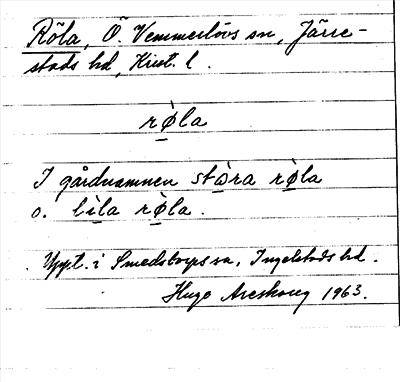 Röla, Ö. Vemmerlövs sn, Järre-
stads hd, Krist. l.
rø̀la
I gårdnamnen stòra rø̀la
o. lìla rø̀la.
Uppt. i Smedstorps sn, Ingelstads hd.
Hugo Areskoug 1963.